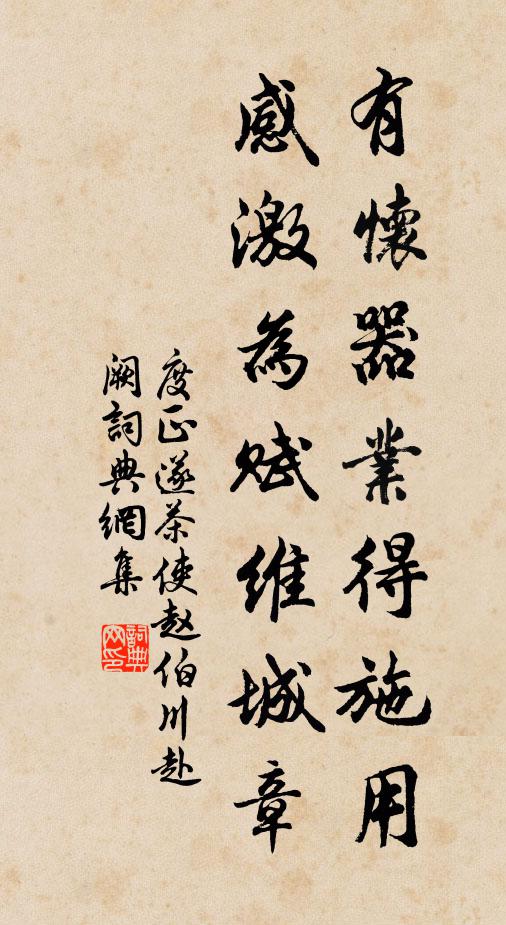 有懷器業得施用
感激為賦維城章
度正送茶使赵伯川赴
闕詞典網集
詞典网印